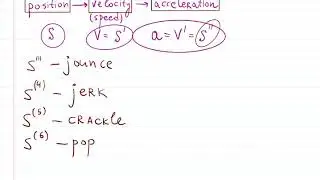 position → velocity → acceleration
(speed)
S V = S' a = V' = S''
S''' – jounce
S⁽⁴⁾ – jerk
S⁽⁵⁾ – crackle
S⁽⁶⁾ – pop